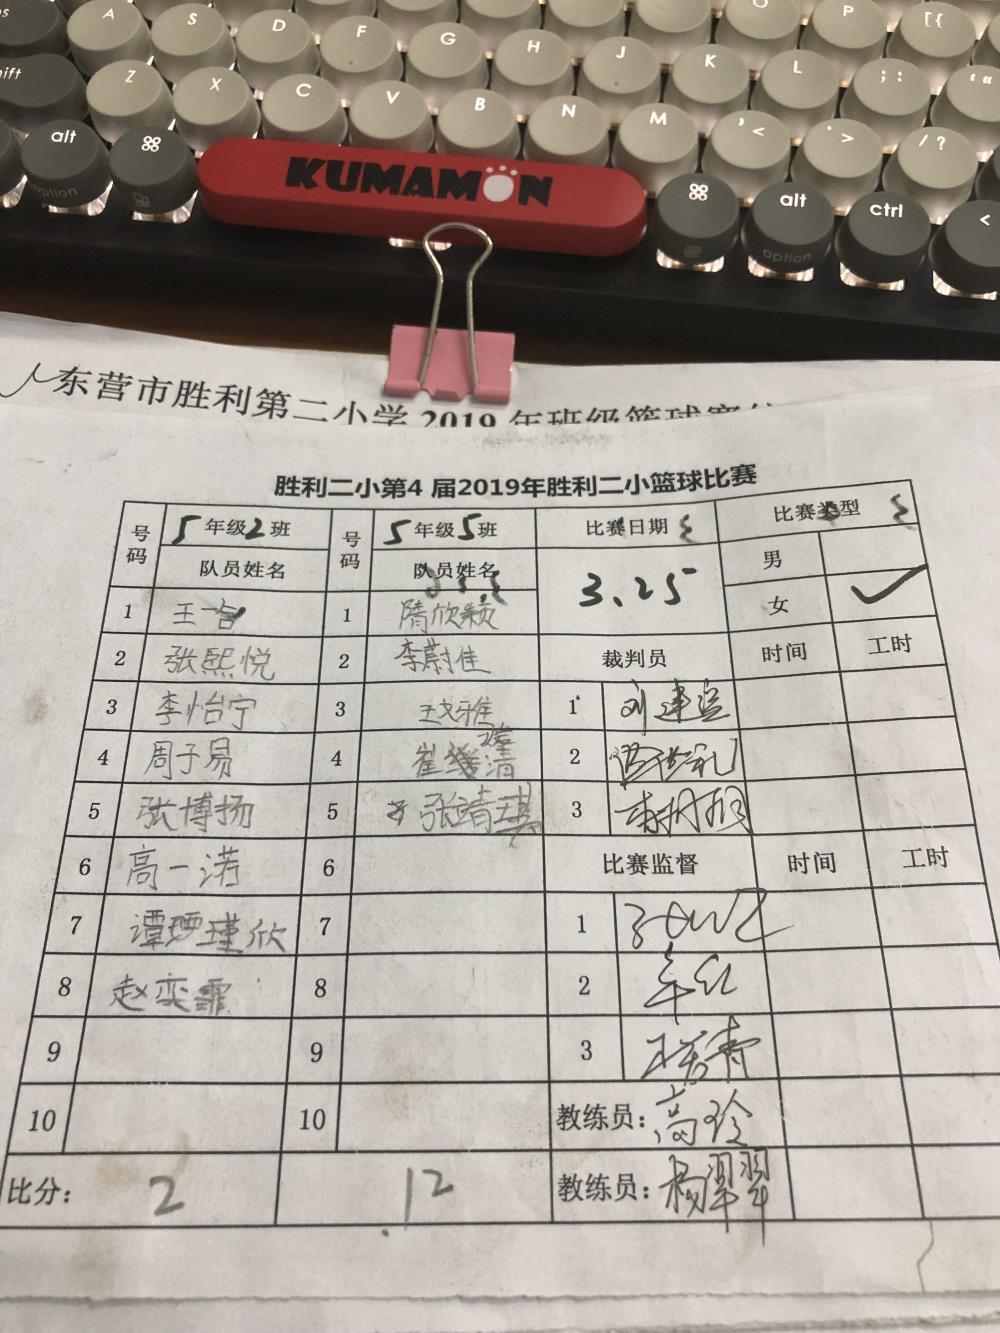 A S D F G H J K L ; :
Z X C V B N M , < . > / ?
alt option ⌘
KUMAMON
⌘ alt option ctrl <
东营市胜利第二小学2019年班级篮球赛
胜利二小第4 届2019年胜利二小篮球比赛
号码 5年级2班 号码 5年级5班 比赛日期 比赛类型
队员姓名 队员姓名 3.25 男
女 ✓
1 王一台 1 隋欣颖
2 张熙悦 2 李蔚佳 裁判员 时间 工时
3 李怡宁 3 1 刘建
4 周子易 4 崔 清 2
5 张博扬 5 张靖琪 3
6 高一诺 6 比赛监督 时间 工时
7 谭 瑾欣 7 1
8 赵奕霏 8 2 年红
9 9 3 王 青
10 10 教练员:高玲
比分: 2 12 教练员:杨翠翠